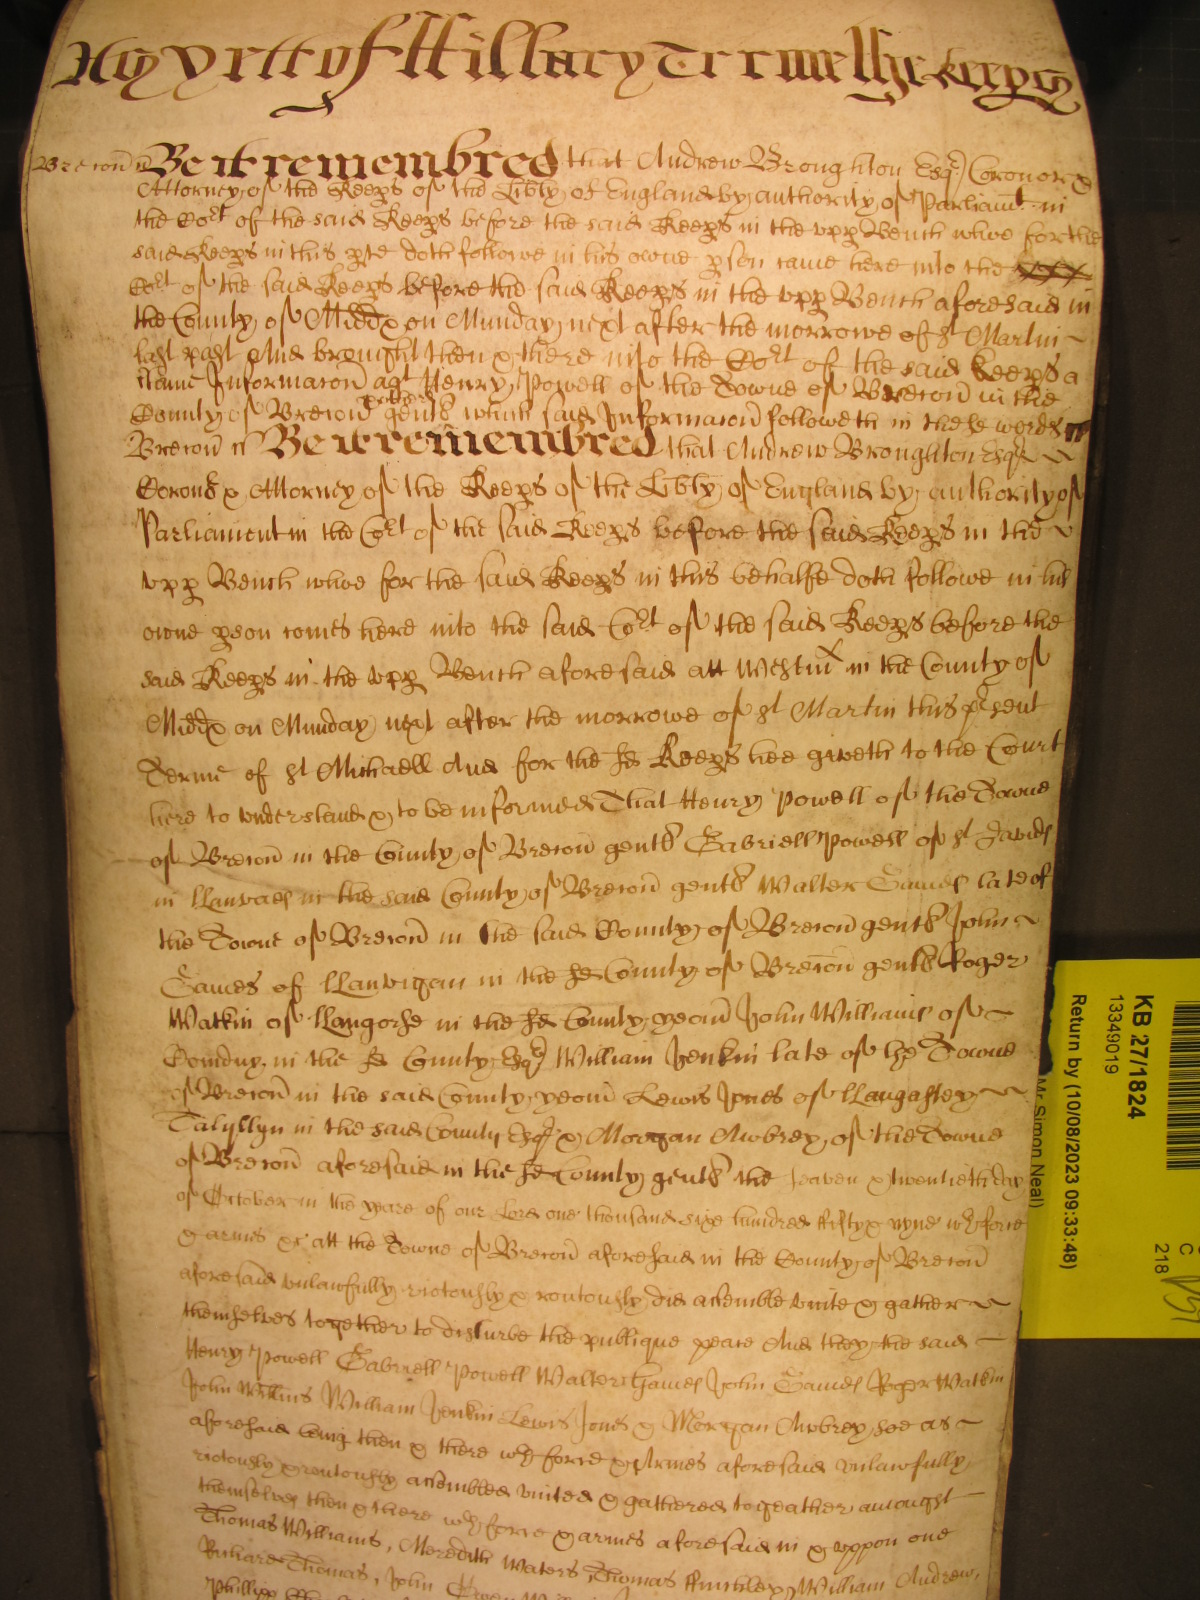 yett of Hillary Terme The Keeps
Brecon Be it remembred that Andrew Broughton Esq Coronor &
Attorney of the Keeps of the Libty of England by authority of Parliamt in
the Cort of the said Keeps before the said Keeps in the upp Bench whoe for the
said Keeps in this pte doth followe in his owne pson came here into the
Cort of the said Keeps before the said Keeps in the upp Bench aforesaid in
the County of Middx on Munday next after the morrowe of St Martin
last past And brought then & there into the Cort of the said Keeps a
certaine Informacon agt Henry Powell of the Towne of Brecon in the
County of Brecon gent & others which said Informacon followeth in these words
Brecon Be it remembred that Andrew Broughton Esqr
Coronr & Attorney of the Keeps of the Libty of England by authority of
Parliament in the Cort of the said Keeps before the said Keeps in the
upp Bench whoe for the said Keeps in this behalfe doth followe in his
owne pson comes here into the said Cort of the said Keeps before the
said Keeps in the upp Bench aforesaid att Westm in the County of
Middx on Munday next after the morrowe of St Martin this present
Terme of St Michaell And for the sd Keeps hee giveth to the Court
here to understand & to be informed That Henry Powell of the Towne
of Brecon in the County of Brecon gent Gabriell Powell of St Davids
in llanvaes in the said County of Brecon gent Walter Games late of
the Towne of Brecon in the said County of Brecon gent John
Games of llanvigan in the sd County of Brecon gent Roger
Watkin of llangorse in the sd County yeom John Williams of
in the sd County Esq William Jenkin late of the Towne
of Brecon in the said County yeom Lewis Jones of llangastey
Talyllyn in the said County Esq & Morgan Awbrey of the Towne
of Brecon aforesaid in the sd County gent the seaven & twentieth day
of October in the yeare of our Lord one thousand sixe hundred fifty & nyne wth force
& armes &c att the Towne of Brecon aforesaid in the County of Brecon
aforesaid unlawfully riotously & routously did assemble unite & gather
themselves together to disturbe the publique peace And they the said
Henry Powell Gabriell Powell Walter Games John Games Roger Watkin
John Williams William Jenkin Lewis Jones & Morgan Awbrey soe as
aforesaid being then & there wth force & Armes aforesaid unlawfully
riotously & routously assembled united & gathered togeather amongst
themselves then & there wth force & armes aforesaid in & uppon one
Thomas Williams, Meredith Waters, Thomas William Andrew,
Richard Thomas, John
Phillipp
KB 27/1824
13349019
Return by (10/08/2023 09:33:48)
Mr Simon Neal)
C
218